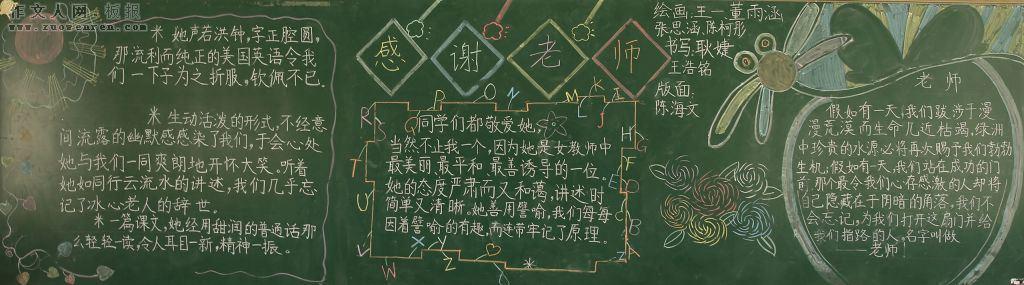 作文人网 板报
www.zuowenren.com
米 她声若洪钟,字正腔圆,
那流利而纯正的美国英语令我
们一下子为之折服,钦佩不已.
米 生动活泼的形式,不经意
间流露的幽默感感染了我们,于会心处
她与我们一同爽朗地开怀大笑。听着
她如同行云流水的讲述,我们几乎忘
记了冰心老人的辞世.
米 一篇课文,她经用甜润的普通话那
么轻轻一读,令人耳目一新,精神一振。
感谢老师
同学们都敬爱她,
当然不止我一个,因为她是女教师中
最美丽、最平和、最善诱导的一位。
她的态度严肃而又和蔼,讲述时
简单又清晰。她善用譬喻,我们每每
因着譬喻的有趣,而连带牢记了原理。
R P O N M L K J I
S Q H G
T F
U E D
V C B
W X Y Z A
绘画:王一 董雨涵
张思涵 陈柯彤
书写:耿婕
王浩铭
版面:
陈海文
老师
假如有一天,我们跋涉于漫
漫荒漠而生命几近枯竭,绿洲
中珍贵的水源必将再次赐予我们勃勃
生机,假如有一天,我们站在成功的门
前,那个最令我们心存感激的人却将
自己隐藏在于阴暗的角落,我们不
会忘记,为我们打开这扇门并给
我们指路的人,名字叫做
——老师